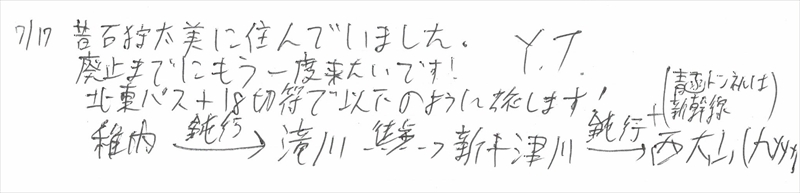 7/17 昔石狩太美に住んでいました。 Y.T.
廃止までにもう一度来たいです!
北東パス+18切符で以下のように旅します!
(青函トンネルは
新幹線)
稚内 鈍行→ 滝川 徒歩→ 新十津川 鈍行+→ 西大山(九州)